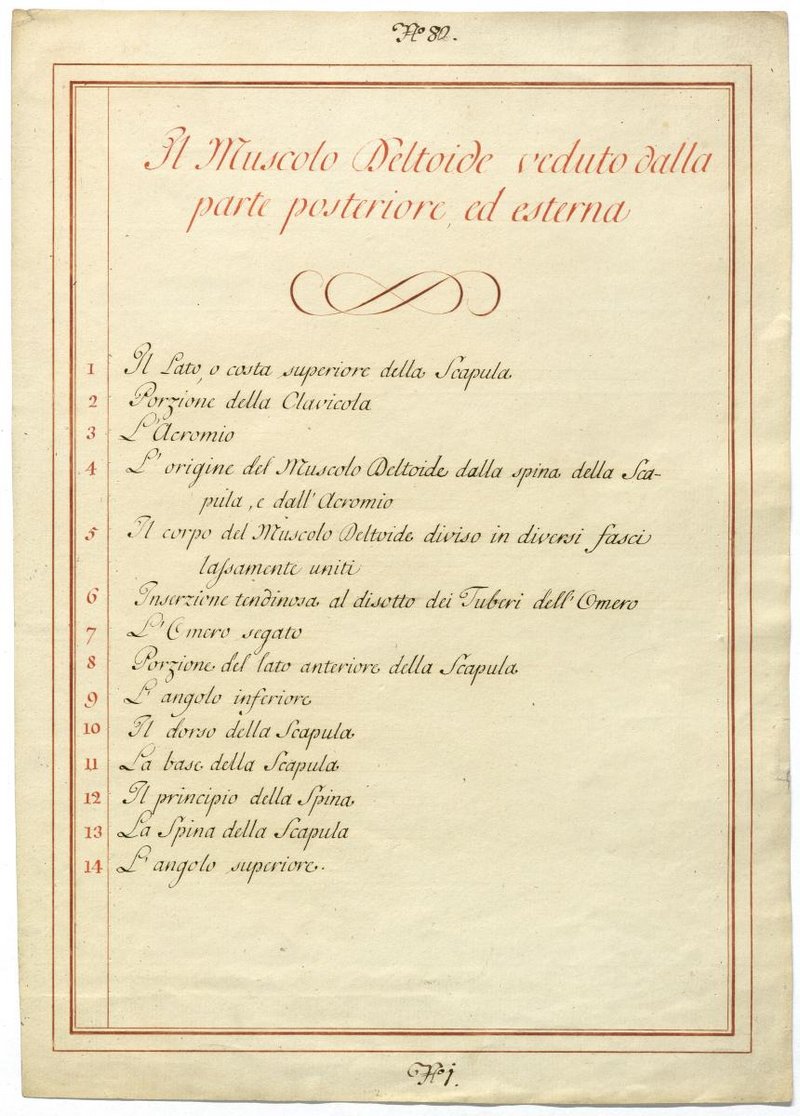 N.o 80.
Il Muscolo Deltoide veduto dalla
parte posteriore, ed esterna
1 Il Lato, o costa superiore della Scapula
2 Porzione della Clavicola
3 L'Acromio
4 L'origine del Muscolo Deltoide dalla spina della Sca-
pula, e dall'Acromio
5 Il corpo del Muscolo Deltoide diviso in diversi fasci
lassamente uniti
6 Inserzione tendinosa al disotto dei Tuberi dell'Omero
7 L'Omero segato
8 Porzione del lato anteriore della Scapula
9 L'angolo inferiore
10 Il dorso della Scapula
11 La base della Scapula
12 Il principio della Spina
13 La Spina della Scapula
14 L'angolo superiore.
N.o 1.